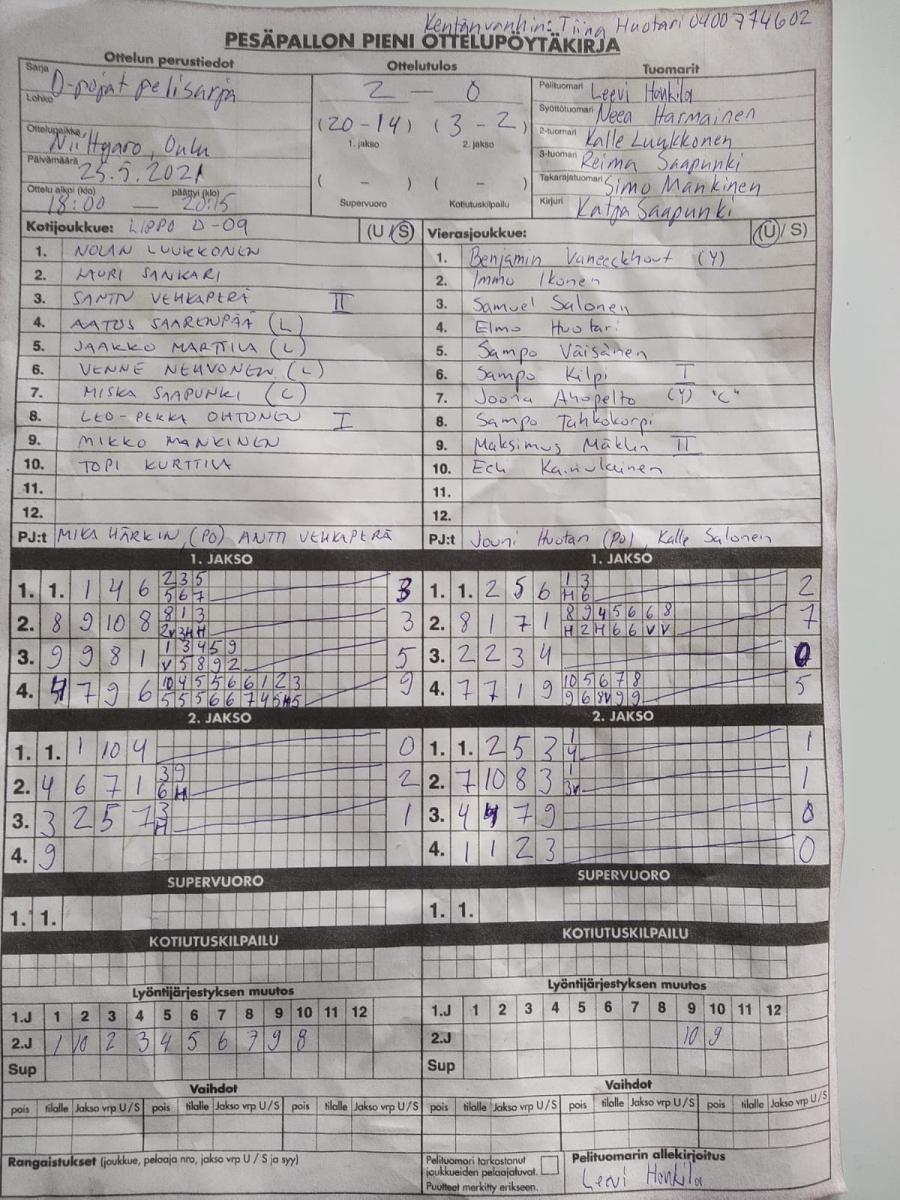 Kentänvanhin: Tiina Huotari 0400774602
PESÄPALLON PIENI OTTELUPÖYTÄKIRJA
Ottelun perustiedot
Sarja D-pojat pelisarja
Lohko
Ottelupaikka, Niittyaro, Oulu
Päivämäärä 25.5.2021
Ottelu alkoi (klo) päättyi (klo)
18:00 — 20:15
Ottelutulos
2 — 0
(20-14) (3-2)
1. jakso 2. jakso
( - ) ( - )
Supervuoro Kotiutuskilpailu
Tuomarit
Pelituomari Leevi Honkila
Syöttötuomari Neea Harmainen
2-tuomari Kalle Luukkonen
3-tuomari Reima Saapunki
Takarajatuomari Simo Mankinen
Kirjuri Katja Saapunki
Kotijoukkue: LIPPO D-09 (U/S)
1. NOLAN LUUKKONEN
2. MURI SANKARI
3. SANTTU VEHKAPERÄ II
4. AATOS SAARENPÄÄ (L)
5. JAAKKO MARTTILA (L)
6. VENNE NEUVONEN (L)
7. MISKA SAAPUNKI (C)
8. LEO-PEKKA OHTONEN I
9. MIKKO MANKINEN
10. TOPI KURTTILA
11.
12.
PJ:t MIKA HÄRKIN, (PO) ANTTI VEHKAPERÄ
Vierasjoukkue: (U/S)
1. Benjamin Vaneeckhout (Y)
2. Immo Ikonen
3. Samuel Salonen
4. Elmo Huotari
5. Sampo Väisänen
6. Sampo Kilpi I
7. Joona Ahopelto (Y) "C"
8. Sampo Tahkokorpi
9. Maksimus Mäklin II
10. Eeli Kainulainen
11.
12.
PJ:t Jouni Huotari (PO), Kalle Salonen
1. JAKSO
1. 1. 1 4 6 2 3 5 3
5 6 7
2. 8 9 10 8 8 1 3 3
2V 3H H
3. 9 9 8 1 1 3 4 5 9 5
V 5 8 9 2
4. 4 7 9 6 10 4 5 5 6 6 1 2 3 9
5 5 5 6 6 7 4 5H 5
1. JAKSO
1. 1. 2 5 6 1 3 2
H 6
2. 8 1 7 1 8 9 4 5 6 6 8 7
H 2 H 6 6 V V
3. 2 2 3 4 0
4. 7 7 1 9 10 5 6 7 8 5
9 6 8V 9 9
2. JAKSO
1. 1. 1 10 4 0
2. 4 6 7 1 3 9 2
6 H
3. 3 2 5 7 3 1
H
4. 9
2. JAKSO
1. 1. 2 5 3 1 1
4
2. 7 10 8 3 1 1
3V
3. 4 4 7 9 0
4. 1 1 2 3 0
SUPERVUORO
1. 1.
SUPERVUORO
1. 1.
KOTIUTUSKILPAILU
KOTIUTUSKILPAILU
Lyöntijärjestyksen muutos
1.J 1 2 3 4 5 6 7 8 9 10 11 12
2.J 1 10 2 3 4 5 6 7 9 8
Sup
Lyöntijärjestyksen muutos
1.J 1 2 3 4 5 6 7 8 9 10 11 12
2.J 10 9
Sup
Vaihdot
pois tilalle Jakso vrp U/S pois tilalle Jakso vrp U/S pois tilalle Jakso vrp U/S
Vaihdot
pois tilalle Jakso vrp U/S pois tilalle Jakso vrp U/S pois tilalle Jakso vrp U/S
Rangaistukset (joukkue, pelaaja nro, jakso vrp U / S ja syy)
Pelituomari tarkastanut
joukkueiden pelaajaluvat.
Puutteet merkitty erikseen.
Pelituomarin allekirjoitus
Leevi Honkila